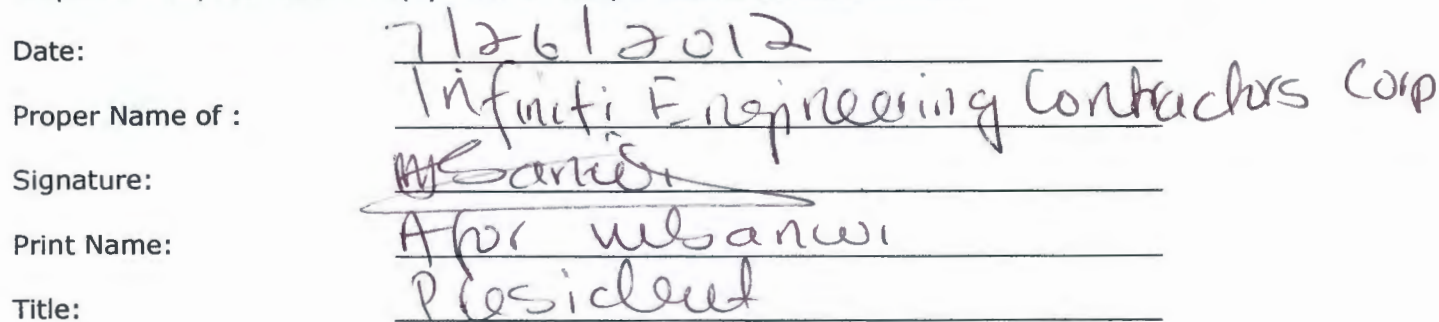 Date: 7/26/2012
Proper Name of : Infiniti Engineering Contractors Corp
Signature:
Print Name: Afor Mbanwi
Title: President